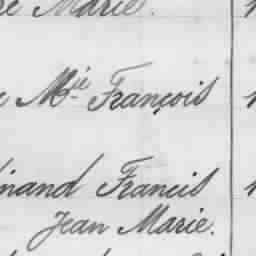 Marie.
Mie François
Francis
Jean Marie.